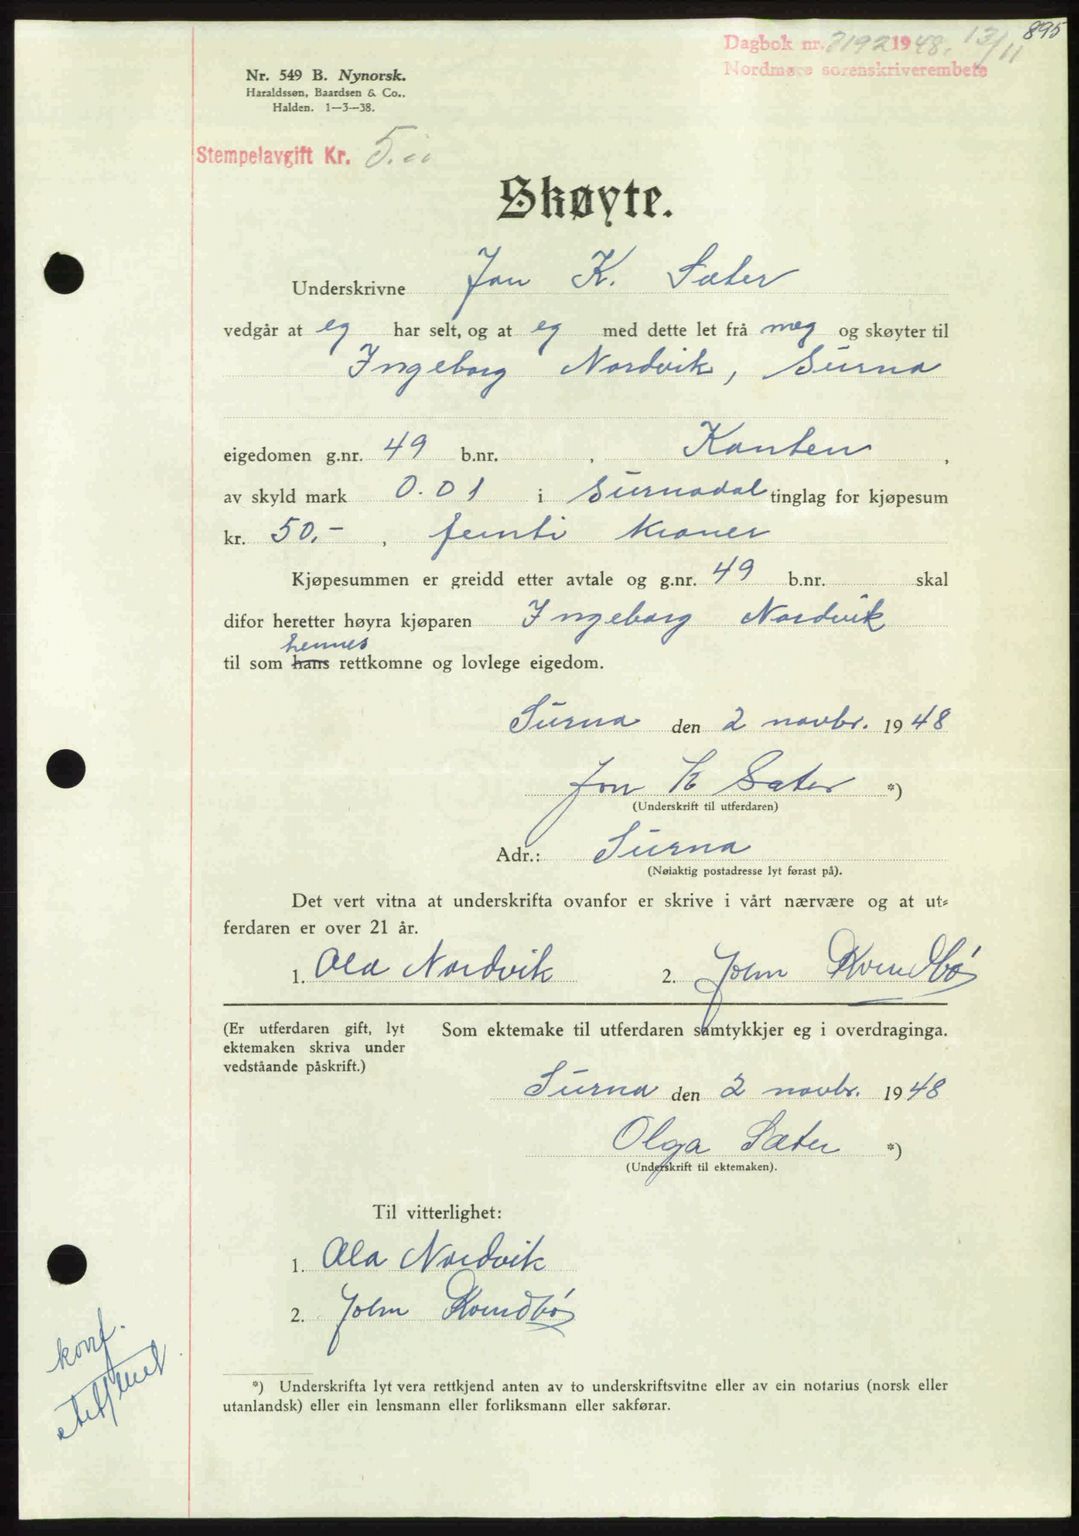 895
Dagbok nr. 3192 1948. 13/11
Nordmøre sorenskriverembete
Nr. 549 B. Nynorsk.
Haraldssøn, Baardsen & Co..
Halden. 1—3—38.
Stempelavgift Kr. 5.00
Skøyte.
Underskrivne Jon K. Sæter
vedgår at eg har selt, og at eg med dette let frå meg og skøyter til
Ingeborg Nordvik, Surna
eigedomen g.nr. 49 b.nr. , Kanten ,
av skyld mark 0.01 i Surnadal tinglag for kjøpesum
kr. 50.- , femti kroner
Kjøpesummen er greidd etter avtale og g.nr. 49 b.nr. skal
difor heretter høyra kjøparen Ingeborg Nordvik
hennes
til som hans rettkomne og lovlege eigedom.
Surna den 2 novbr. 1948
Jon K Sæter *)
(Underskrift til utferdaren)
Adr.: Surna
(Nøiaktig postadresse lyt førast på).
Det vert vitna at underskrifta ovanfor er skrive i vårt nærvære og at ut-
ferdaren er over 21 år.
1. Ola Nordvik 2. John Kvendbø
(Er utferdaren gift, lyt
ektemaken skriva under
vedståande påskrift.)
Som ektemake til utferdaren samtykkjer eg i overdraginga.
Surna den 2 novbr. 1948
Olga Sæter *)
(Underskrift til ektemaken).
Til vitterlighet:
1. Ola Nordvik
2. John Kvendbø
konf.
*) Underskrifta lyt vera rettkjend anten av to underskriftsvitne eller av ein notarius (norsk eller
utanlandsk) eller ein lensmann eller forliksmann eller sakførar.